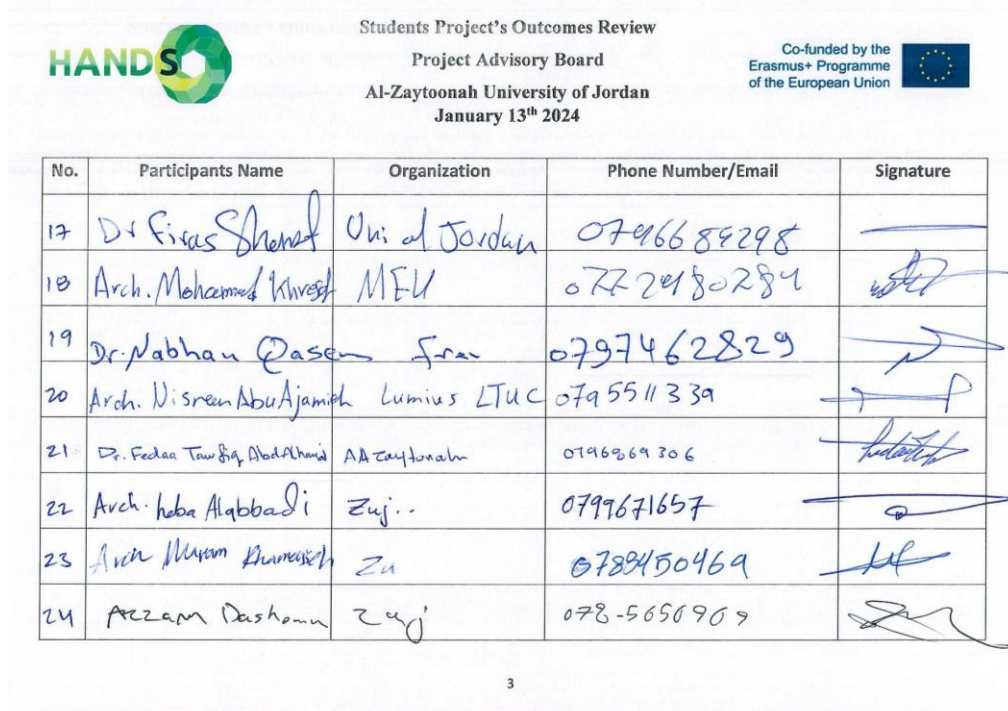 HANDS
Students Project's Outcomes Review
Project Advisory Board
Al-Zaytoonah University of Jordan
January 13th 2024
Co-funded by the
Erasmus+ Programme
of the European Union
No. Participants Name Organization Phone Number/Email Signature
17 Dr Firas Uni of Jordan 0796689298
18 Arch. Mohammed MEU
19 Dr. Nabhan Qasem 0797462829
20 Arch. Nisreen AbuAjamieh Lumius LTUC 0795511339
21 Dr. Fedaa Tawfiq AbdAlhamid 0796969306
22 Arch. heba Alqbbadi Zuj.. 0799671657
23 Arch Zu 0789450469
24 AzzAm Zuj 078-5650909
3